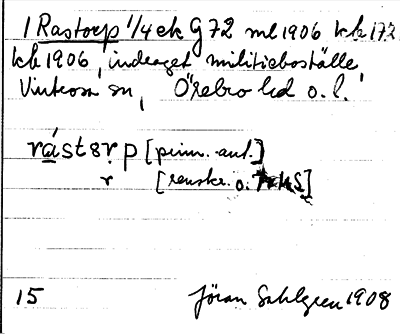 1 Rastorp 1/4 ek G 72 ml 1906 kk 172
kk 1906, indraget militieboställe
Vintrosa sn, Örebro hd o. l.
råstɜrp [prim. ant.]
r [renskr. o.
15 Jöran Sahlgren 1908